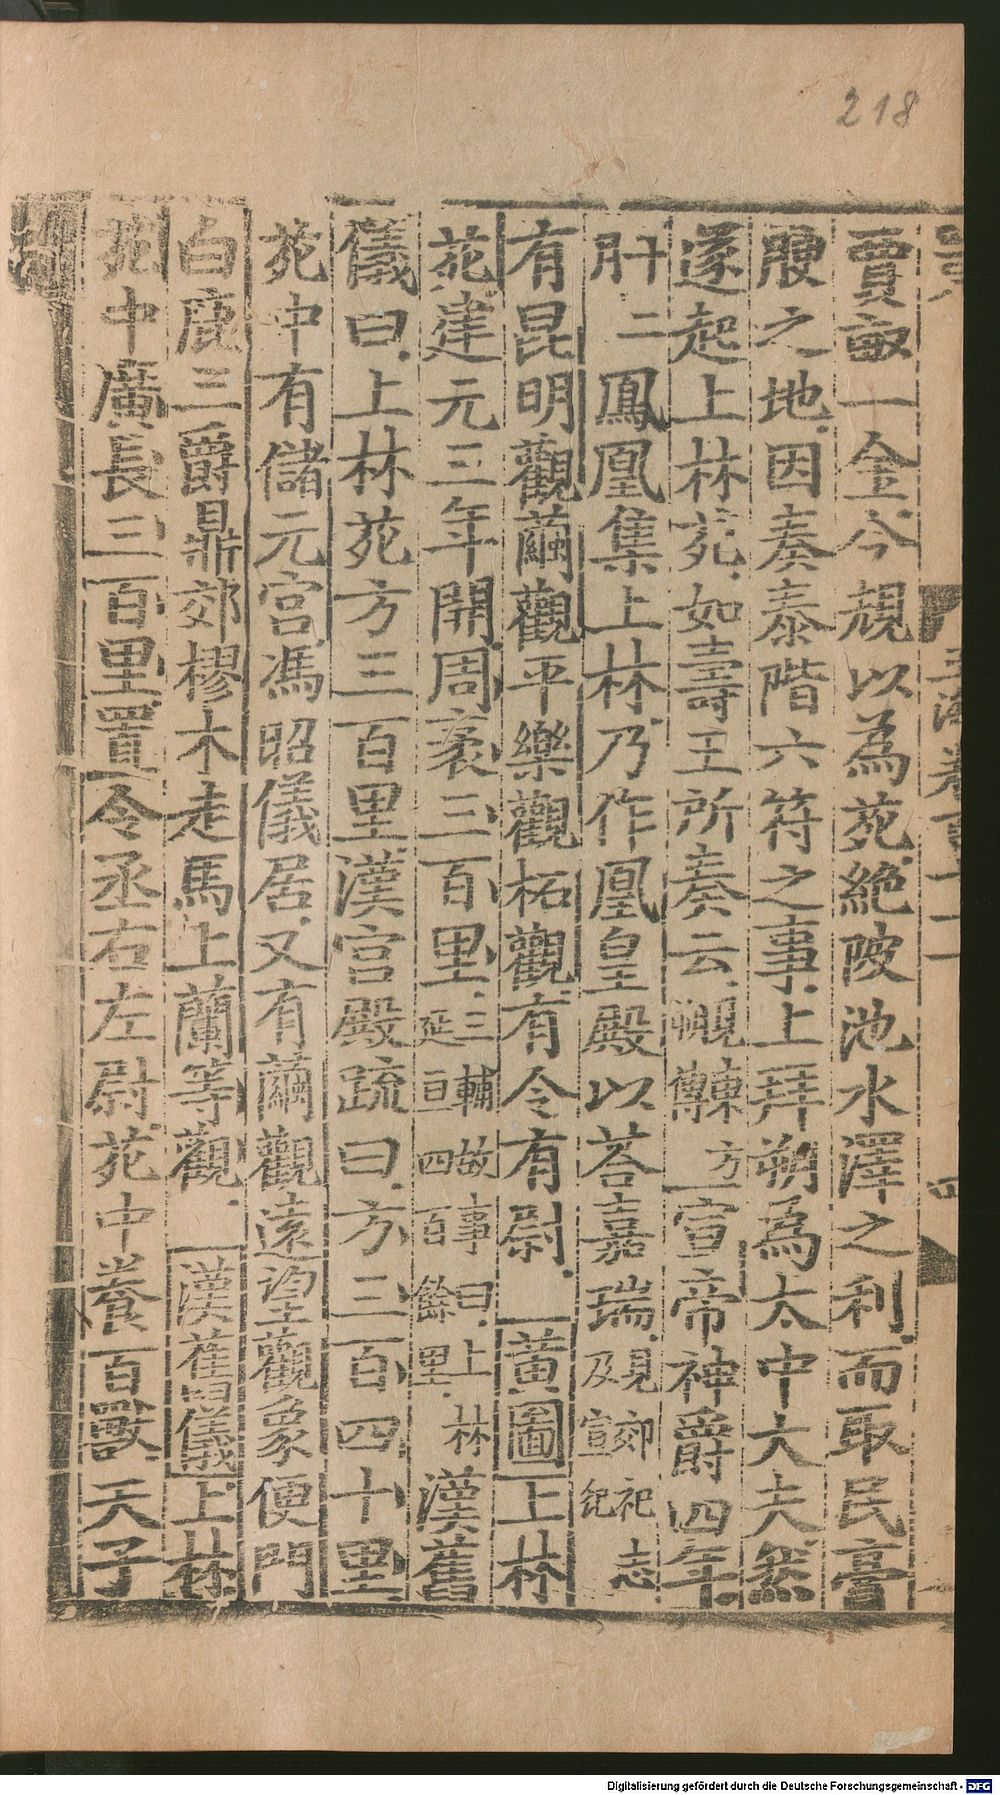 218
賈畝一金今規以為苑絶陂池水澤之利而取民膏
腴之地因奏泰階六符之事上拜朔為太中大夫然
遂起上林苑如壽王所奏云覩東方傳宣帝神爵四年
肝二鳳凰集上林乃作凰皇殿以荅嘉瑞見郊祀志及宣紀
有昆明觀繭觀平樂觀柘觀有令有尉黄圖上林
苑建元三年開周袤三百里三輔故事曰上林延亘四百餘里漢舊
儀曰上林苑方三百里漢宫殿疏曰方三百四十里
苑中有儲元宫馮昭儀居又有繭觀逺望觀象便門
白鹿三爵鼎郊樛木走馬上蘭等觀漢舊儀上林
苑中廣長三百里置令丞右左尉苑中養百獸天子
Digitalisierung gefördert durch die Deutsche Forschungsgemeinschaft - DFG